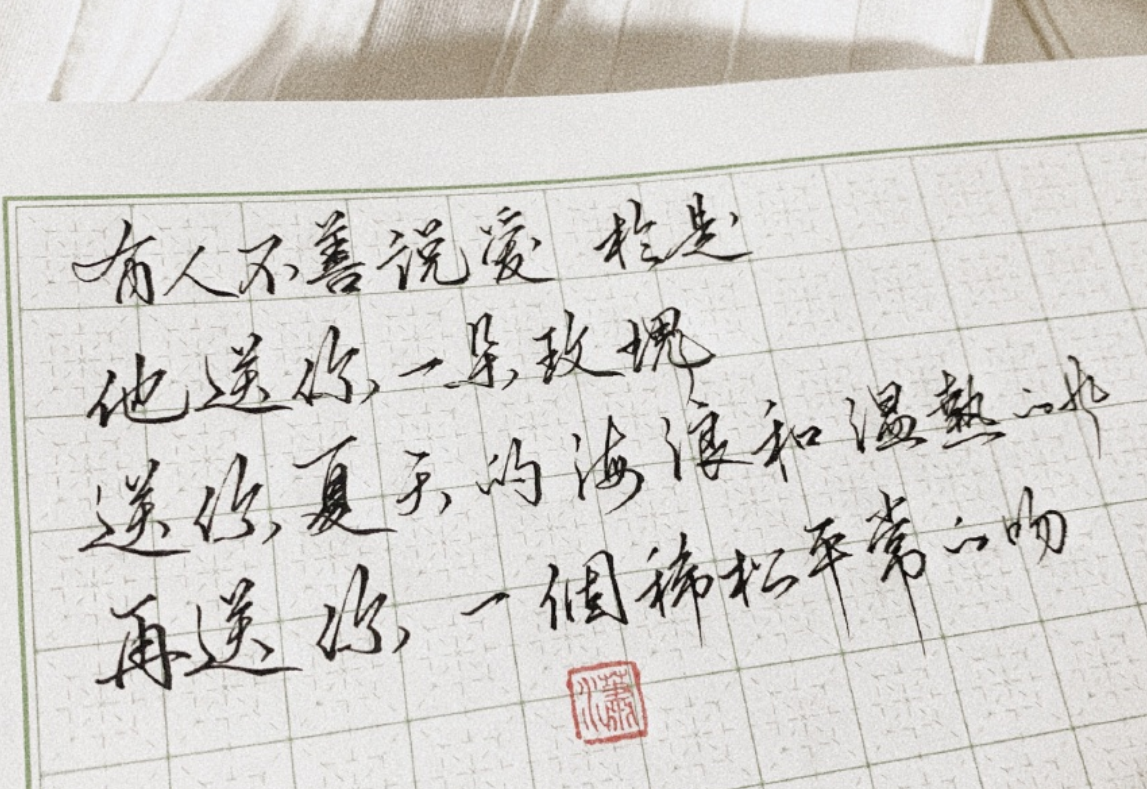 有人不善說愛 於是
他送你一朵玫瑰
送你夏天的海浪和溫熱的
再送你一個稀松平常的吻
瀟